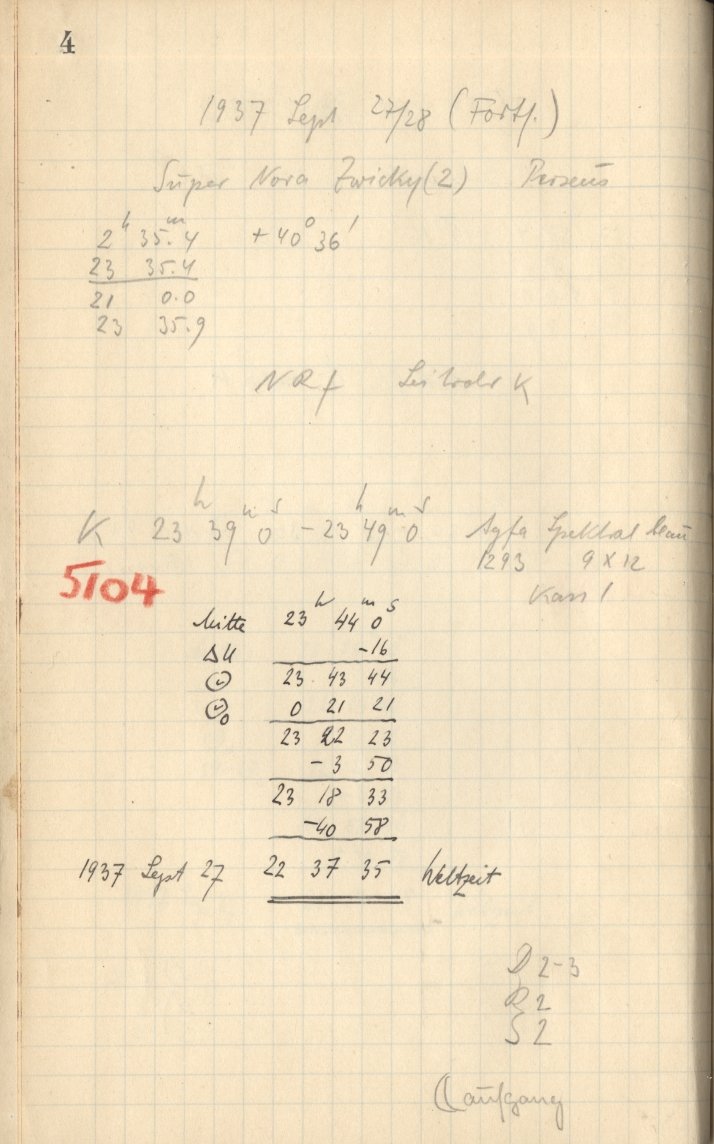 4
1937 Sept 27/28 (Fortf.)
Super Nova Zwicky (2) Perseus
2h 35m.4 +40° 36'
23 35.4
21 0.0
23 35.9
NRf K
K 23h 39m 0s - 23h 49m 0s Agfa Spektral blau
1293 9 x 12
5104
Kass 1
Mitte 23h 44m 0s
ΔU -16
☉ 23 43 44
☉0 0 21 21
23 22 23
-3 50
23 18 33
-40 58
1937 Sept 27 22 37 35 Weltzeit
D 2-3
R 2
S 2
☾ aufgang